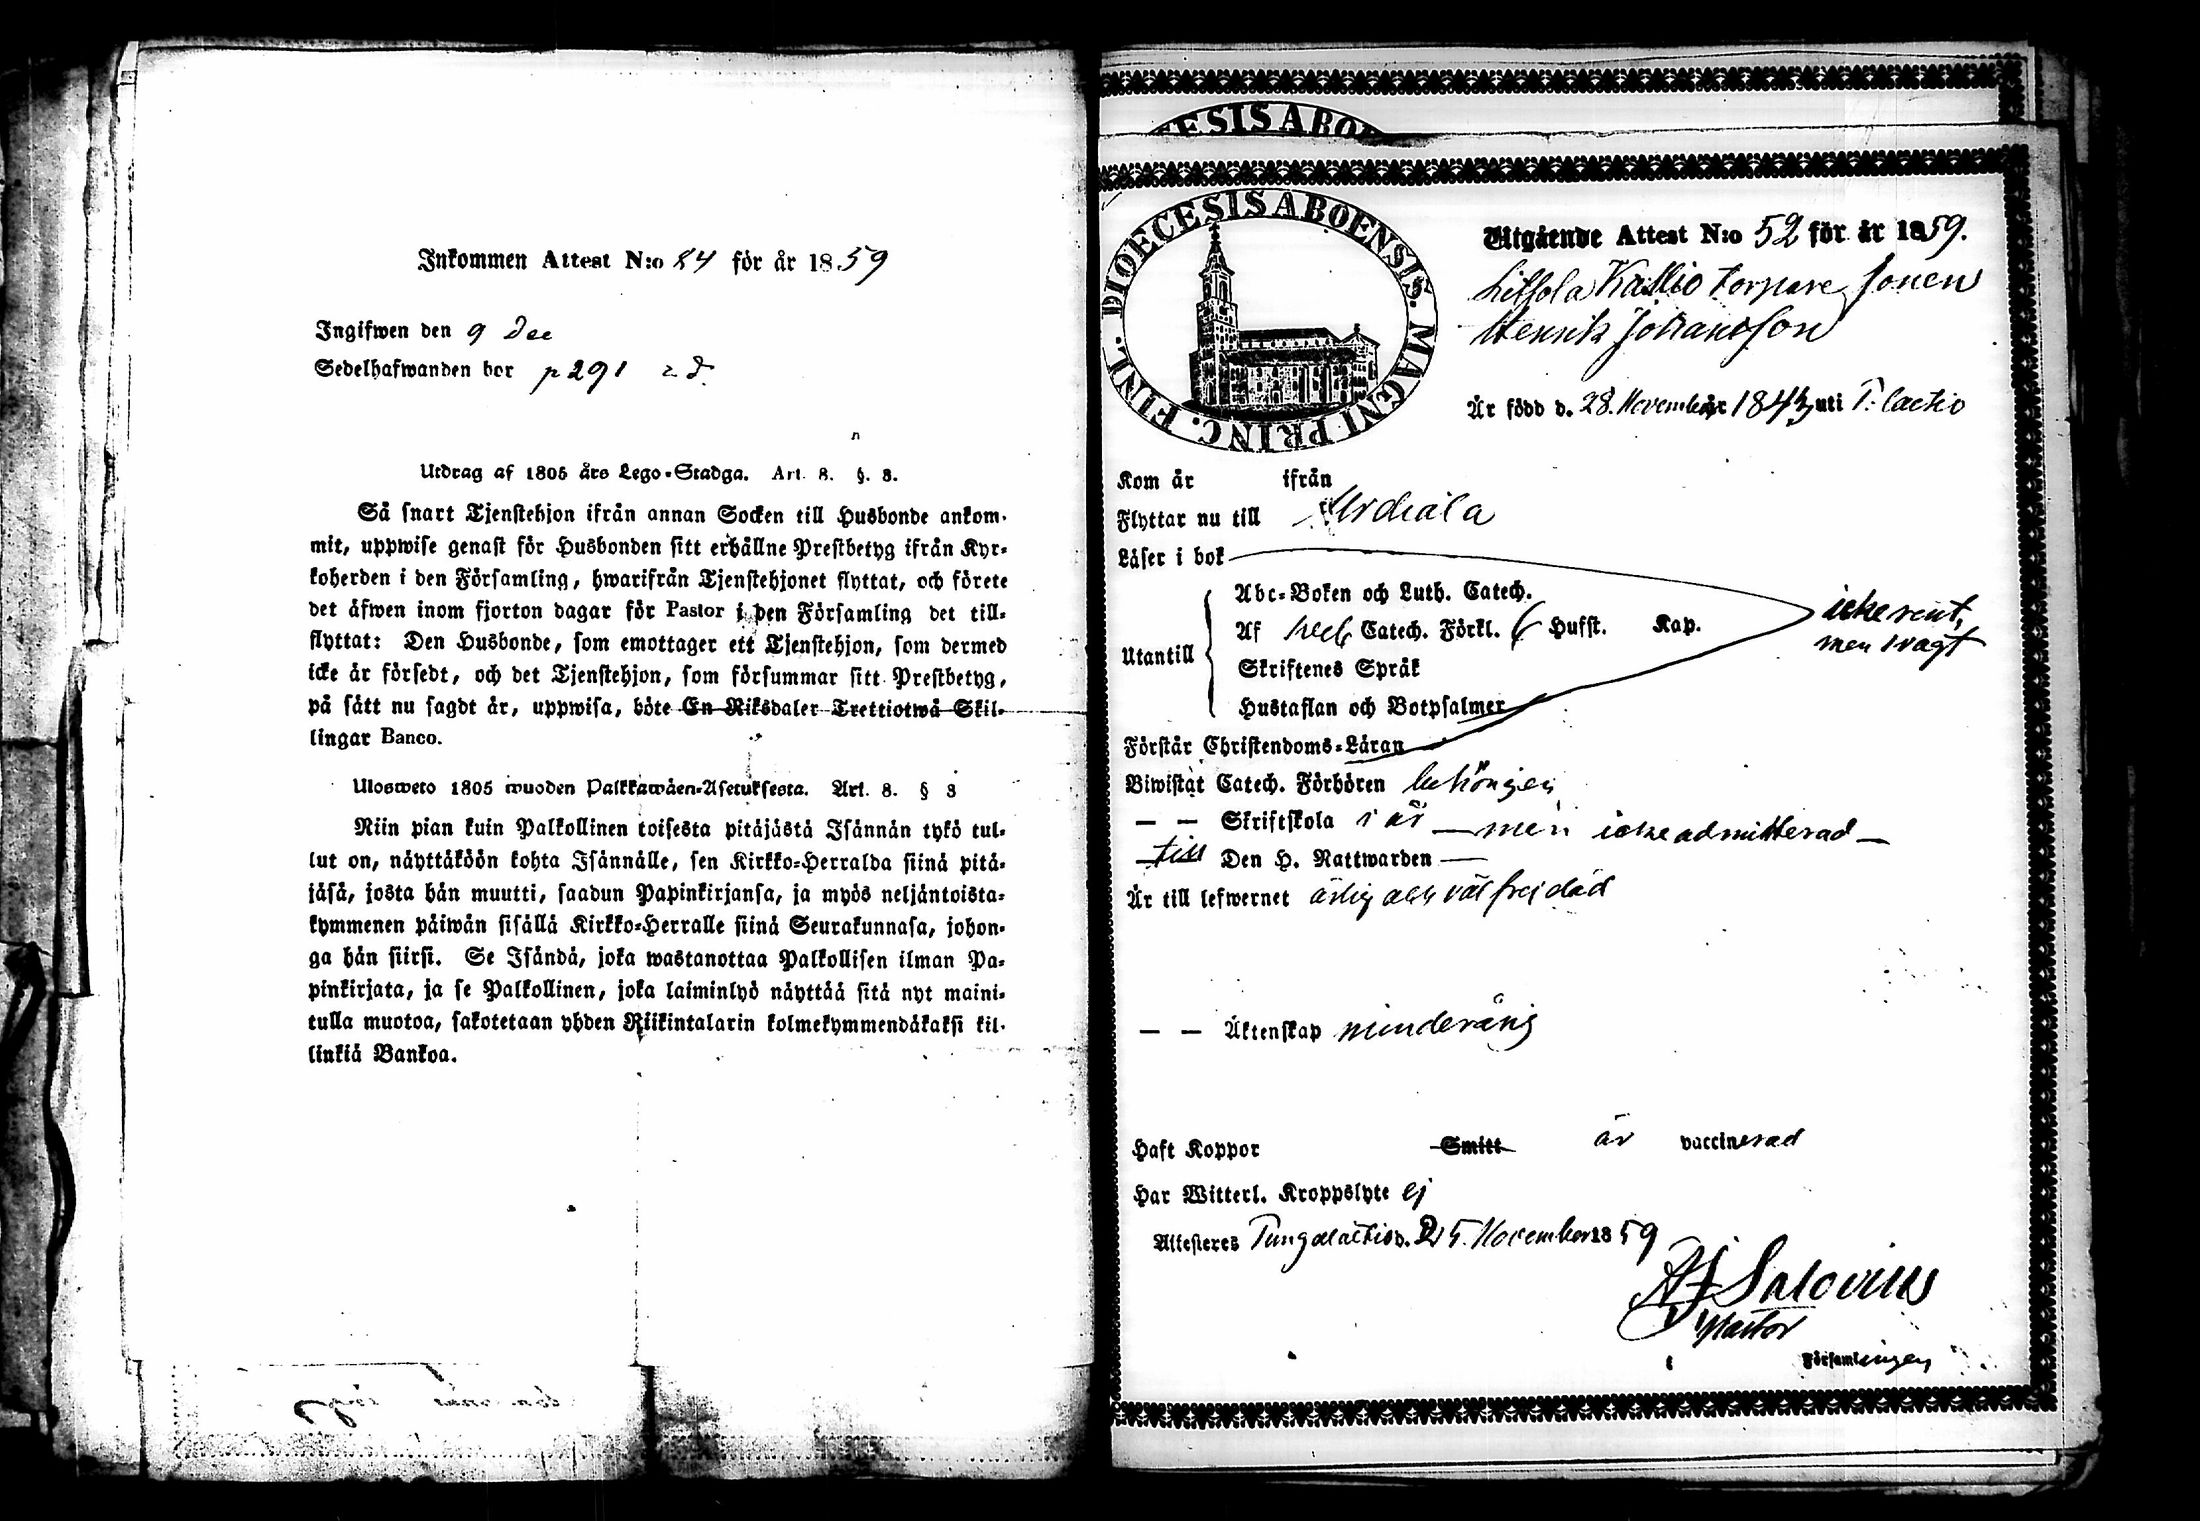 Inkommen Attest N:o 84 för år 1859
Ingifwen den 9 Dec
Sedelhafwanden bor p 291
Utdrag af 1805 års Lego-Stadga. Art. 8. §. 3.
Så snart Tjenstehjon ifrån annan Socken till Husbonde ankom-
mit, uppwise genast för Husbonden sitt erhållne Prestbetyg ifrån Kyr-
koherden i den Församling, hwarifrån Tjenstehjonet flyttat, och förete
det äfwen inom fjorton dagar för Pastor i den Församling det till-
flyttat: Den Husbonde, som emottager ett Tjenstehjon, som dermed
icke är försedt, och det Tjenstehjon, som försummar sitt Prestbetyg,
på sätt nu sagdt är, uppwisa, böte En Riksdaler Trettiotwå Skil-
lingar Banco.
Ulosweto 1805 wuoden Palkkawäen-Asetuksesta. Art. 8. § 3
Niin pian kuin Palkollinen toisesta pitäjästä Isännän tykö tul-
lut on, näyttäköön kohta Isännälle, sen Kirkko-Herralda siinä pitä-
jäsä, josta hän muutti, saadun Papinkirjansa, ja myös neljäntoista-
kymmenen päiwän sisällä Kirkko-Herralle siinä Seurakunnasa, johon-
ga hän siirsi. Se Isändä, joka wastanottaa Palkollisen ilman Pa-
pinkirjata, ja se Palkollinen, joka laiminlyö näyttää sitä nyt maini-
tulla muotoa, sakotetaan yhden Riikintalarin kolmekymmendäkaksi kil-
linkiä Bankoa.
DIOECESIS ABOENSIS. MAGNI PRINC. FINL.
Utgående Attest N:o 52 för år 1859.
Kallio torpare sonen
Henrik Johansson
Är född d. 28. November 1843 uti T: laitio
Kom år ifrån
Flyttar nu till Urdiala
Läser i bok
Utantill
Abc-Boken och Luth. Catech.
Af Catech. Förkl. Husst. Kap.
Skriftenes Språk
Hustaflan och Botpsalmer
icke rent,
men svagt
Förstår Christendoms-Läran
Biwistat Catech. Förhören behörigen
— — Skriftskola i år — men icke admitterad —
till Den H. Nattwarden —
Är till lefwernet ärlig och väl frejdad
— — Äktenskap minderårig
Haft Koppor Smitt är vaccinerad
Har Witterl. Kroppslyte ej
Attesteres Pungalaitio d. 25. November 1859
AJ Salovius
Pastor
i Församlingen